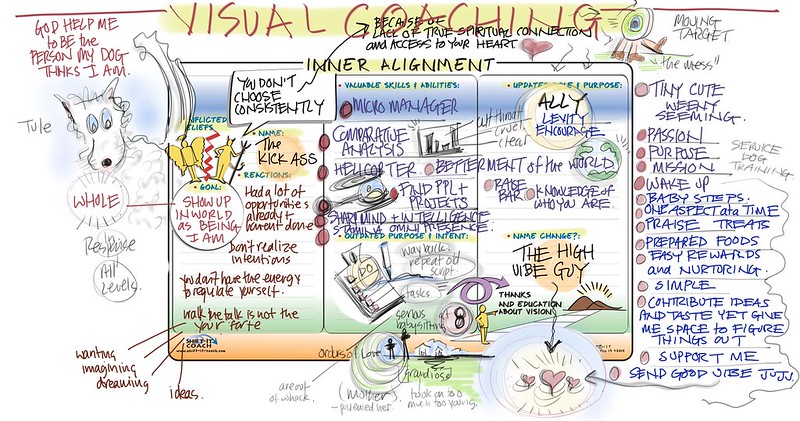 VISUAL COACHING
GOD HELP ME
to BE the
PERSON MY DOG
THINKS I AM.
BECAUSE OF
LACK OF TRUE SPIRITUAL CONNECTION
and ACCESS to YOUR HEART
MOVING
TARGET
"the mess"
INNER ALIGNMENT
YOU DON'T
CHOOSE
CONSISTENTLY
Tule
WHOLE
Response
All
Levels.
CONFLICTED
BELIEFS
• NAME:
The
KICK ASS
• GOAL:
SHOW UP
IN WORLD
AS BEING
I AM
• REACTIONS:
Had a lot of
opportunities
already +
haven't done
Don't realize
intentions
you don't have the energy
to regulate yourself.
walk the talk is not the
your forte
wanting
imagining
dreaming
ideas.
SHIFT-IT
COACH
www.shift-it-coach.com
• VALUABLE SKILLS & ABILITIES:
MICRO MANAGER
COMPARATIVE
ANALYSIS
cut throat
cruel
clear
HELICOPTER
BETTERMENT of the WORLD
FIND PPL +
PROJECTS
RAISE
BAR
KNOWLEDGE of
WHO YOU ARE
SHARP MIND + INTELLIGENCE
STAMINA OMNI PRESENCE.
• OUTDATED PURPOSE & INTENT:
DO
way back
repeat old
script
tasks
serious
babysitting
8
• UPDATED ROLE & PURPOSE:
ALLY
LEVITY
ENCOURAGE
• NAME CHANGE?:
THE HIGH
VIBE GUY
THANKS
AND EDUCATION
ABOUT VISION
orders of Love
are out
of whack.
(mother)
grandiose
took on too
much too young.
TINY CUTE
WEENY
SEEMING.
PASSION
PURPOSE
MISSION
WAKE UP
SERVICE
DOG
TRAINING
BABY STEPS.
ONE ASPECT at a TIME
PRAISE TREATS
PREPARED FOODS
EASY REWARDS
and NURTURING.
SIMPLE
CONTRIBUTE IDEAS
AND TASTE YET GIVE
ME SPACE to FIGURE
THINGS OUT
SUPPORT ME
SEND GOOD VIBE JUJU.